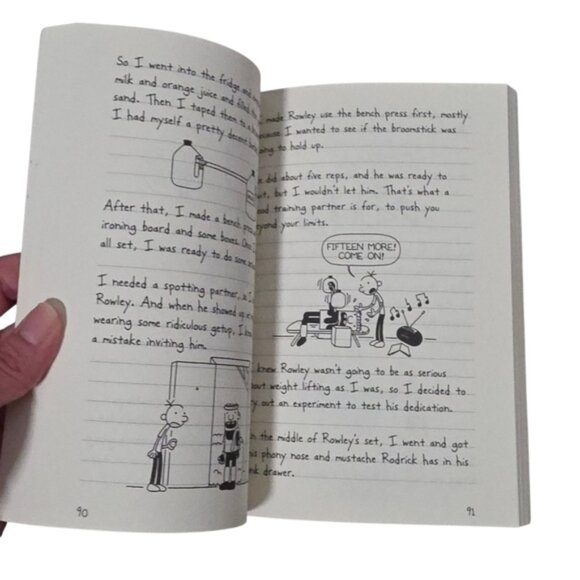 So I went into the fridge and
milk and orange juice and filled
sand. Then I taped them to a
I had myself a pretty decent
After that, I made a bench press
ironing board and some boxes.
all set, I was ready to do some
I needed a spotting partner, so I
Rowley. And when he showed up
wearing some ridiculous getup, I
a mistake inviting him.
90
made Rowley use the bench press first, mostly
because I wanted to see if the broomstick was
going to hold up.
did about five reps, and he was ready to
quit, but I wouldn't let him. That's what a
good training partner is for, to push you
beyond your limits.
FIFTEEN MORE!
COME ON!
knew Rowley wasn't going to be as serious
about weight lifting as I was, so I decided to
try out an experiment to test his dedication.
In the middle of Rowley's set, I went and got
this phony nose and mustache Rodrick has in his
junk drawer.
91